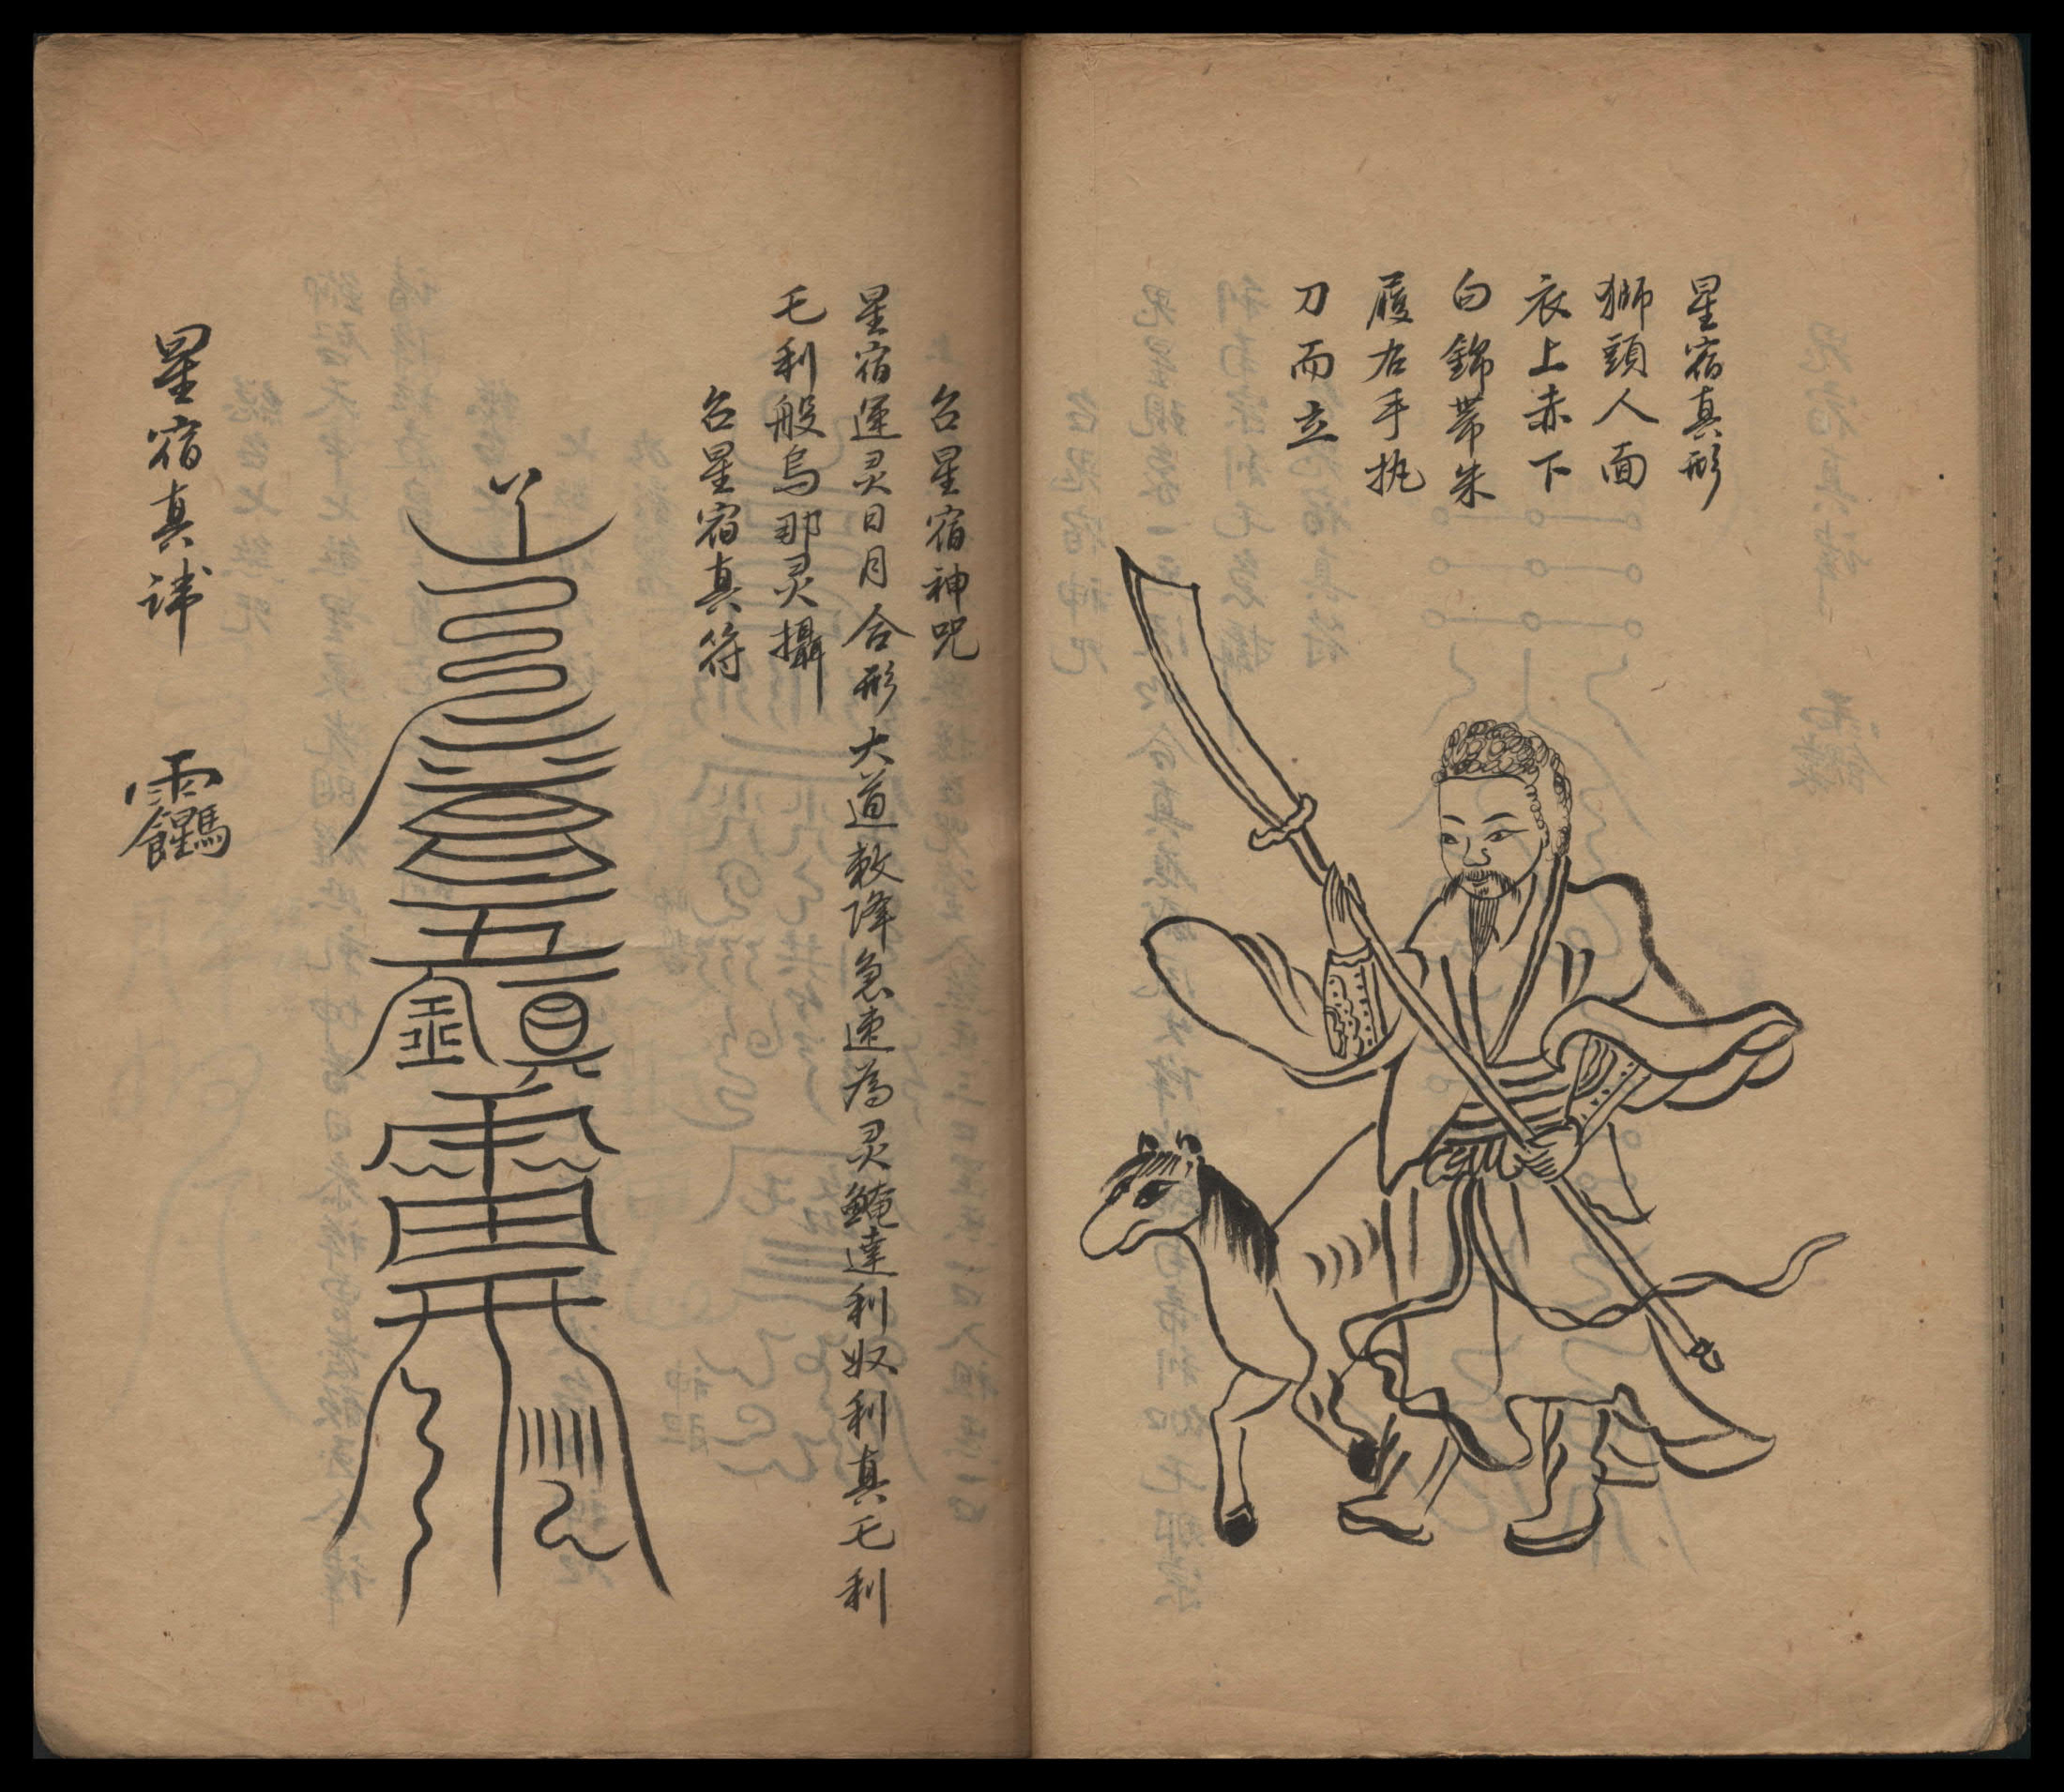 星宿真形
獅頭人面
衣上赤下
白錦帶朱
履右手执
刀而立
召星宿神咒
星宿運灵日月合形大道敕降急速為灵鯩達利奴利真乇利
乇利般烏那灵攝
召星宿真符
五
真
星宿真諱